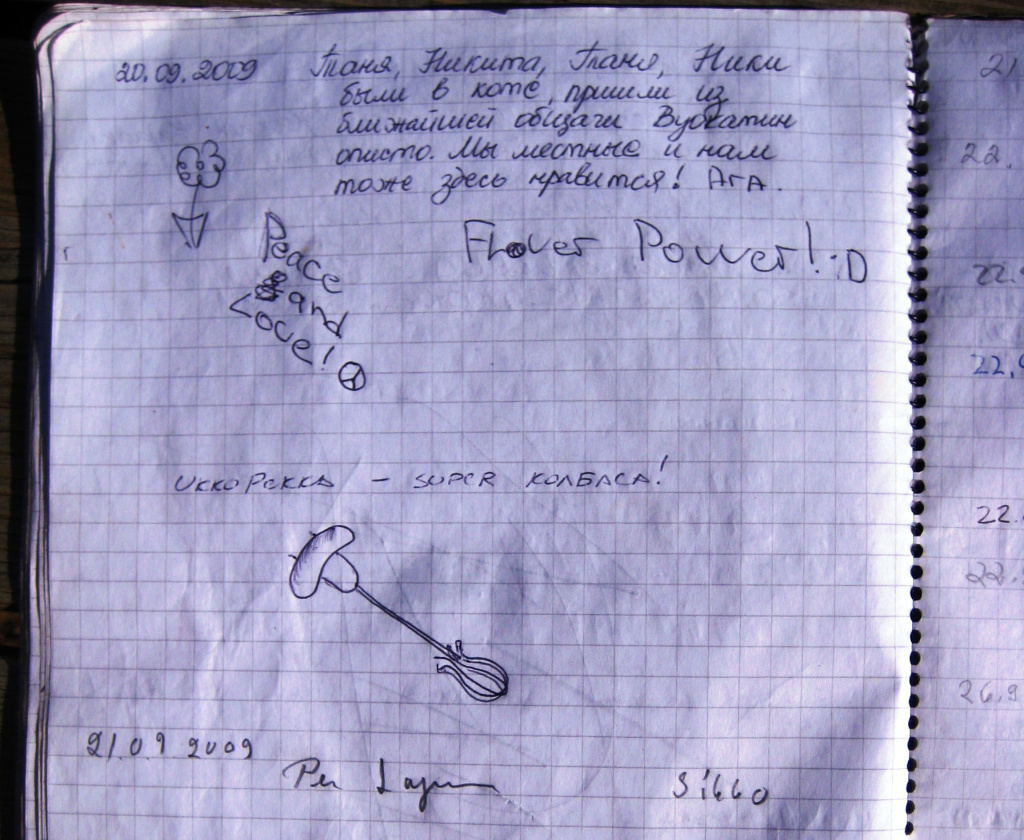 20.09.2009 Таня, Никита, Таня, Ники
были в коте, пришли из
ближайшей общаги Вуокатин
описто. Мы местные и нам
тоже здесь нравится! АГА.
Peace
and
Love!
Flover Power! :D
UKKOPEKKA – SUPER КОЛБАСА!
21.09 2009
Sibbo
21
22.
22.
22.9
22.
22.
26.9